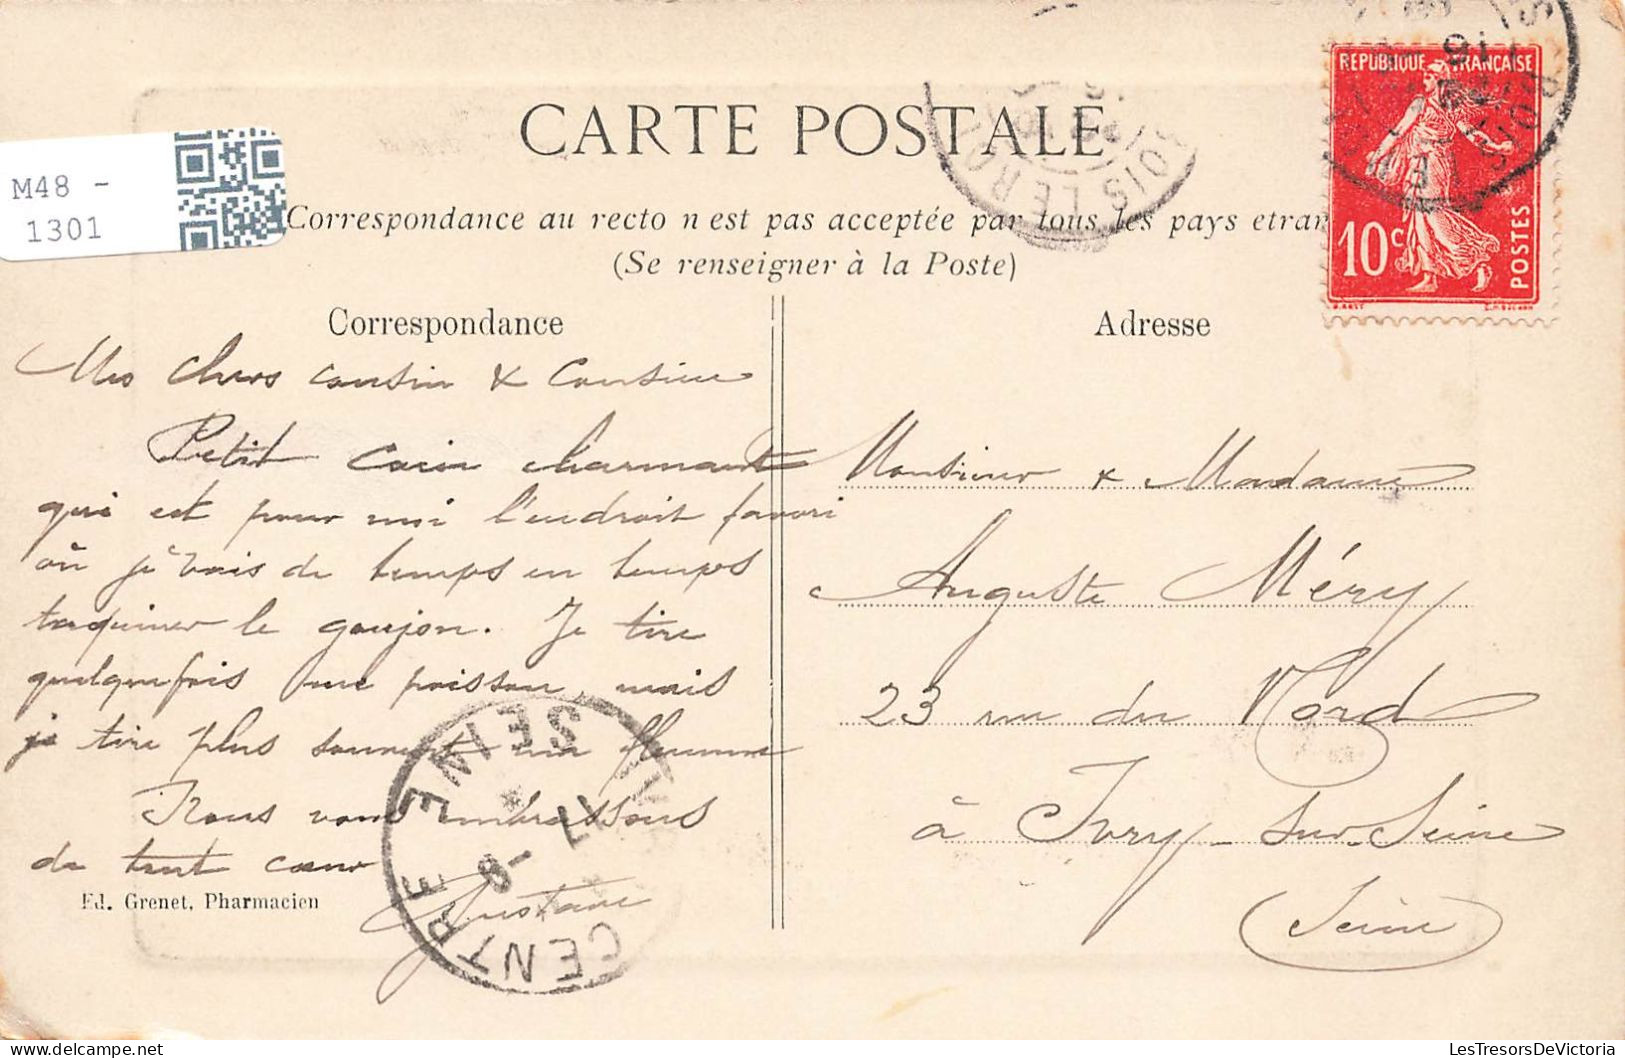 M48 -
1301
CARTE POSTALE
Correspondance au recto n est pas acceptée par tous les pays etran
(Se renseigner à la Poste)
REPUBLIQUE FRANÇAISE
10c
POSTES
BOIS LE ROI
Correspondance
Adresse
Mes chers cousin & Cousine
Petit coin charmant
qui est pour moi l'endroit favori
où je vais de temps en temps
taquiner le goujon. Je tire
quelquefois une poisson, mais
je tire plus souvent ma flemme
Nous vous embrassons
de tout cœur
Gustave
Ed. Grenet, Pharmacien
Monsieur & Madame
Auguste Méry
23 rue du Nord
à Ivry-sur-Seine
(Seine)
CENTRE SEINE
LesTresorsDeVictoria